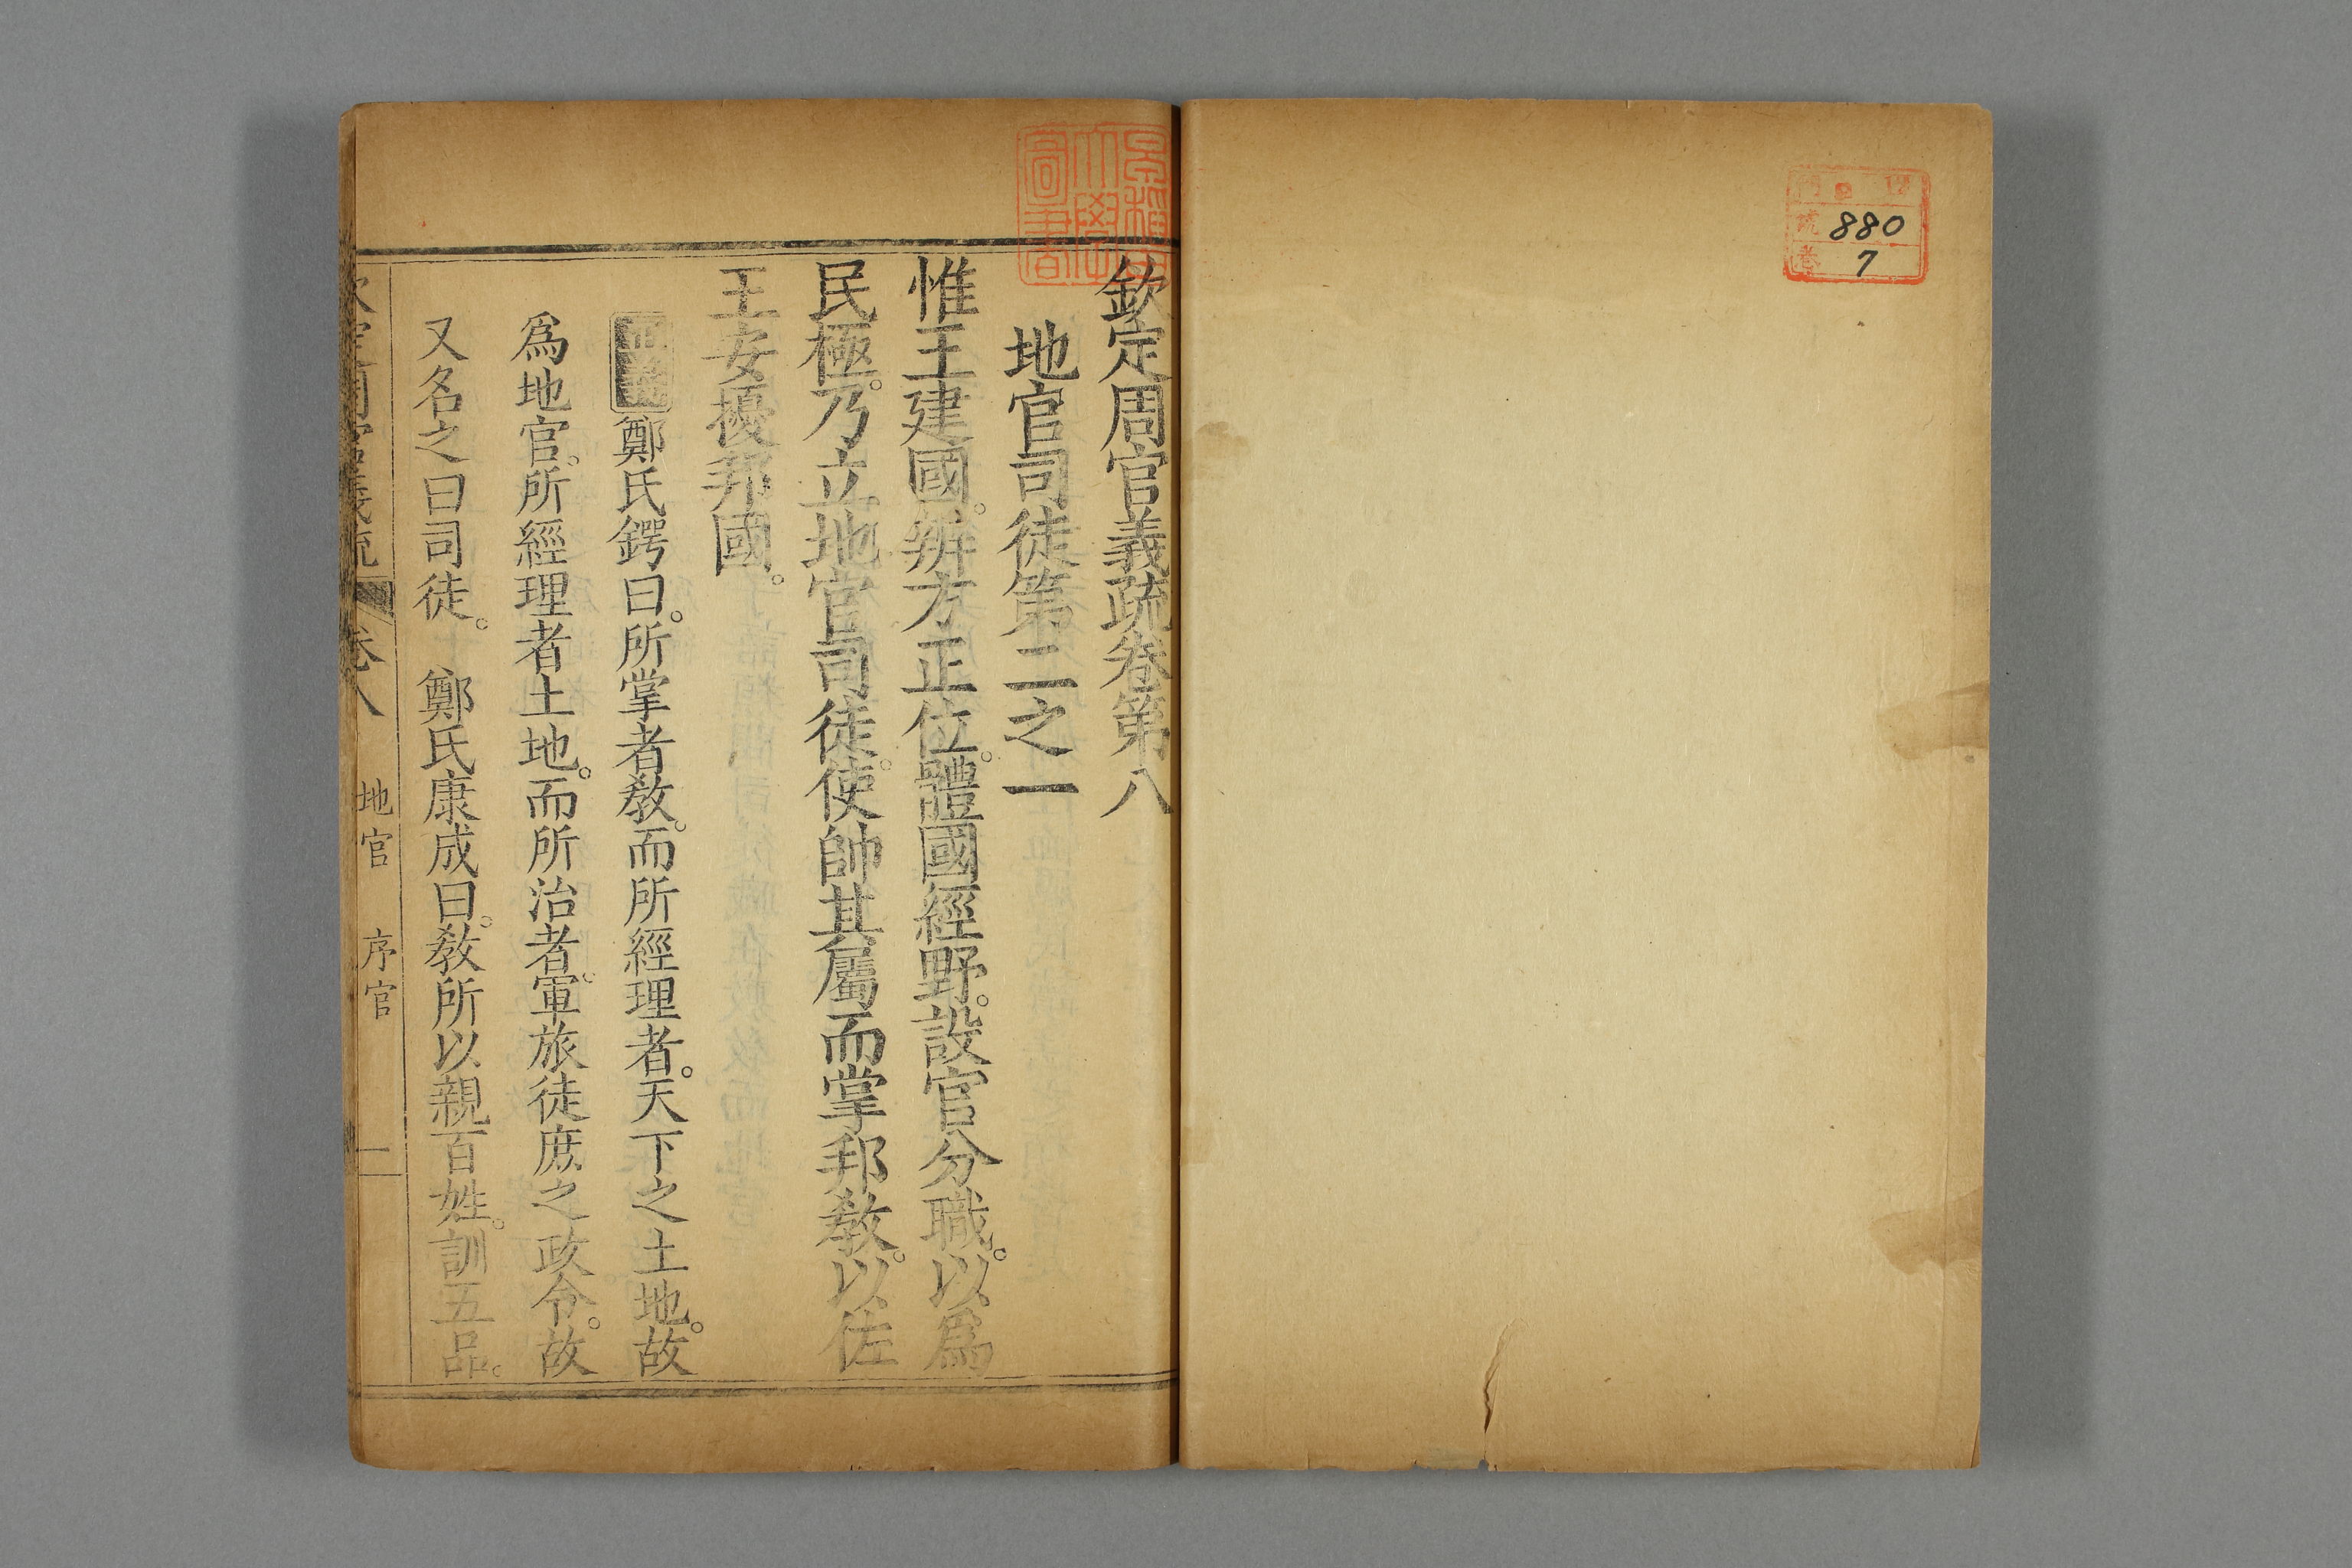 880
7
欽定周官義疏卷第八
地官司徒第二之一
惟王建國。辨方正位。體國經野。設官分職。以爲
民極。乃立地官司徒。使帥其屬而掌邦敎。以佐
王安擾邦國。
鄭氏鍔曰。所掌者敎。而所經理者。天下之土地。故
爲地官。所經理者土地。而所治者。軍旅徒庶之政令。故
又名之曰司徒。 鄭氏康成曰。敎所以親百姓。訓五品。
卷八 地官 序官 一